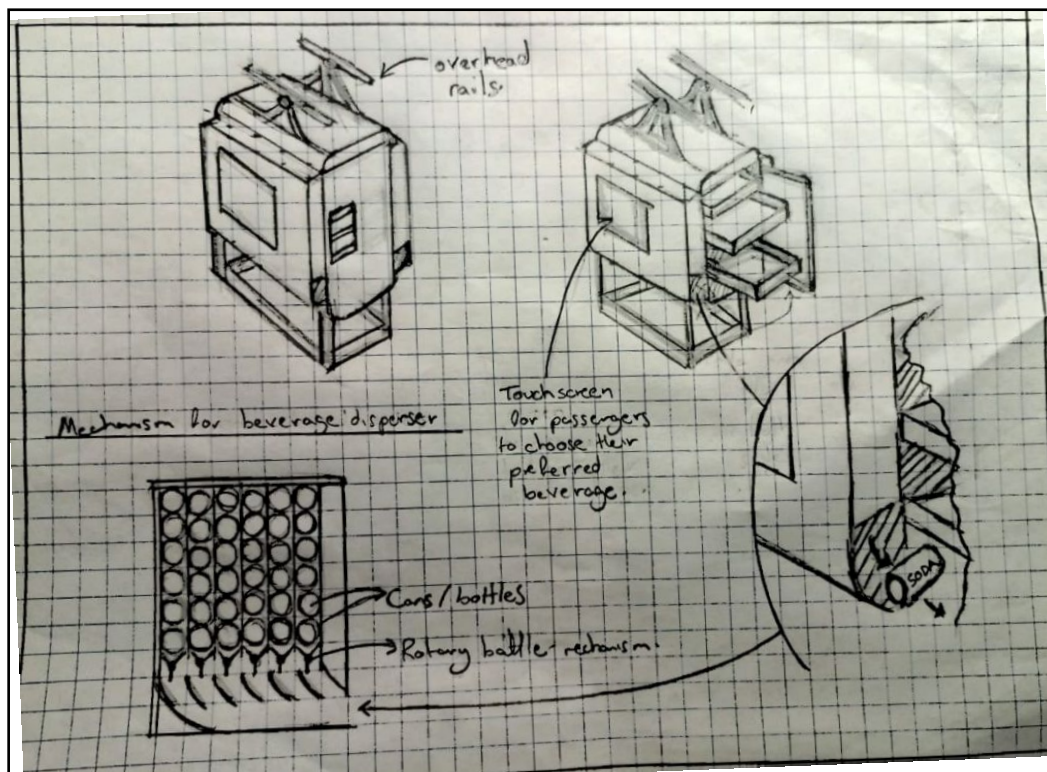 overhead
rails.
Touchscreen
for passengers
to choose their
preferred
beverage.
Mechanism for beverage disperser
SODA
Cans/bottles
Rotary battle-mechanism.